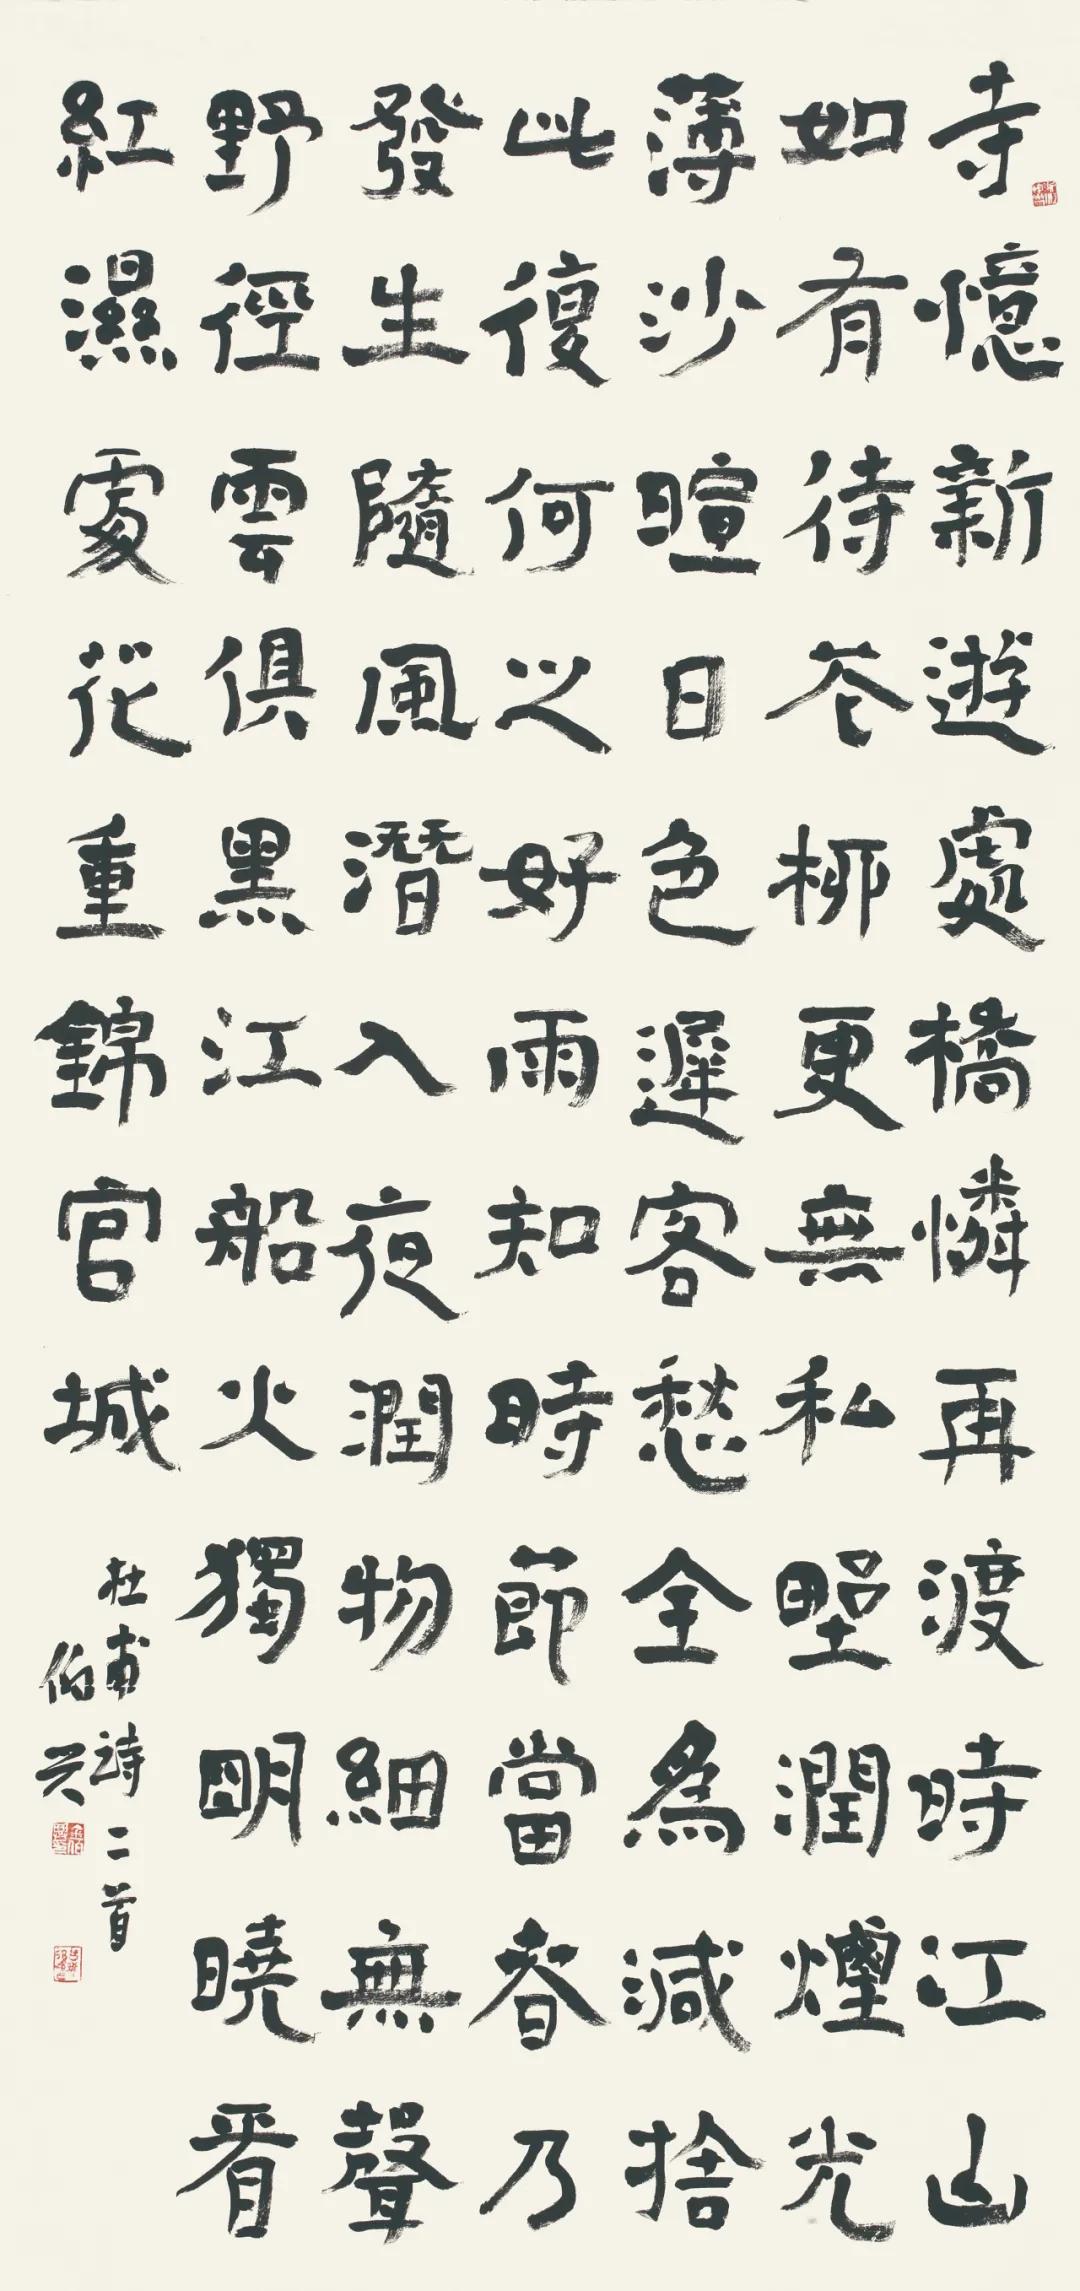 寺憶新遊處橋憐再渡時江山
如有待花柳更無私野潤煙光
薄沙暄日色遲客愁全為減捨
此復何之好雨知時節當春乃
發生隨風潛入夜潤物細無聲
野徑雲俱黑江船火獨明曉看
紅濕處花重錦官城
杜甫詩二首
伯興